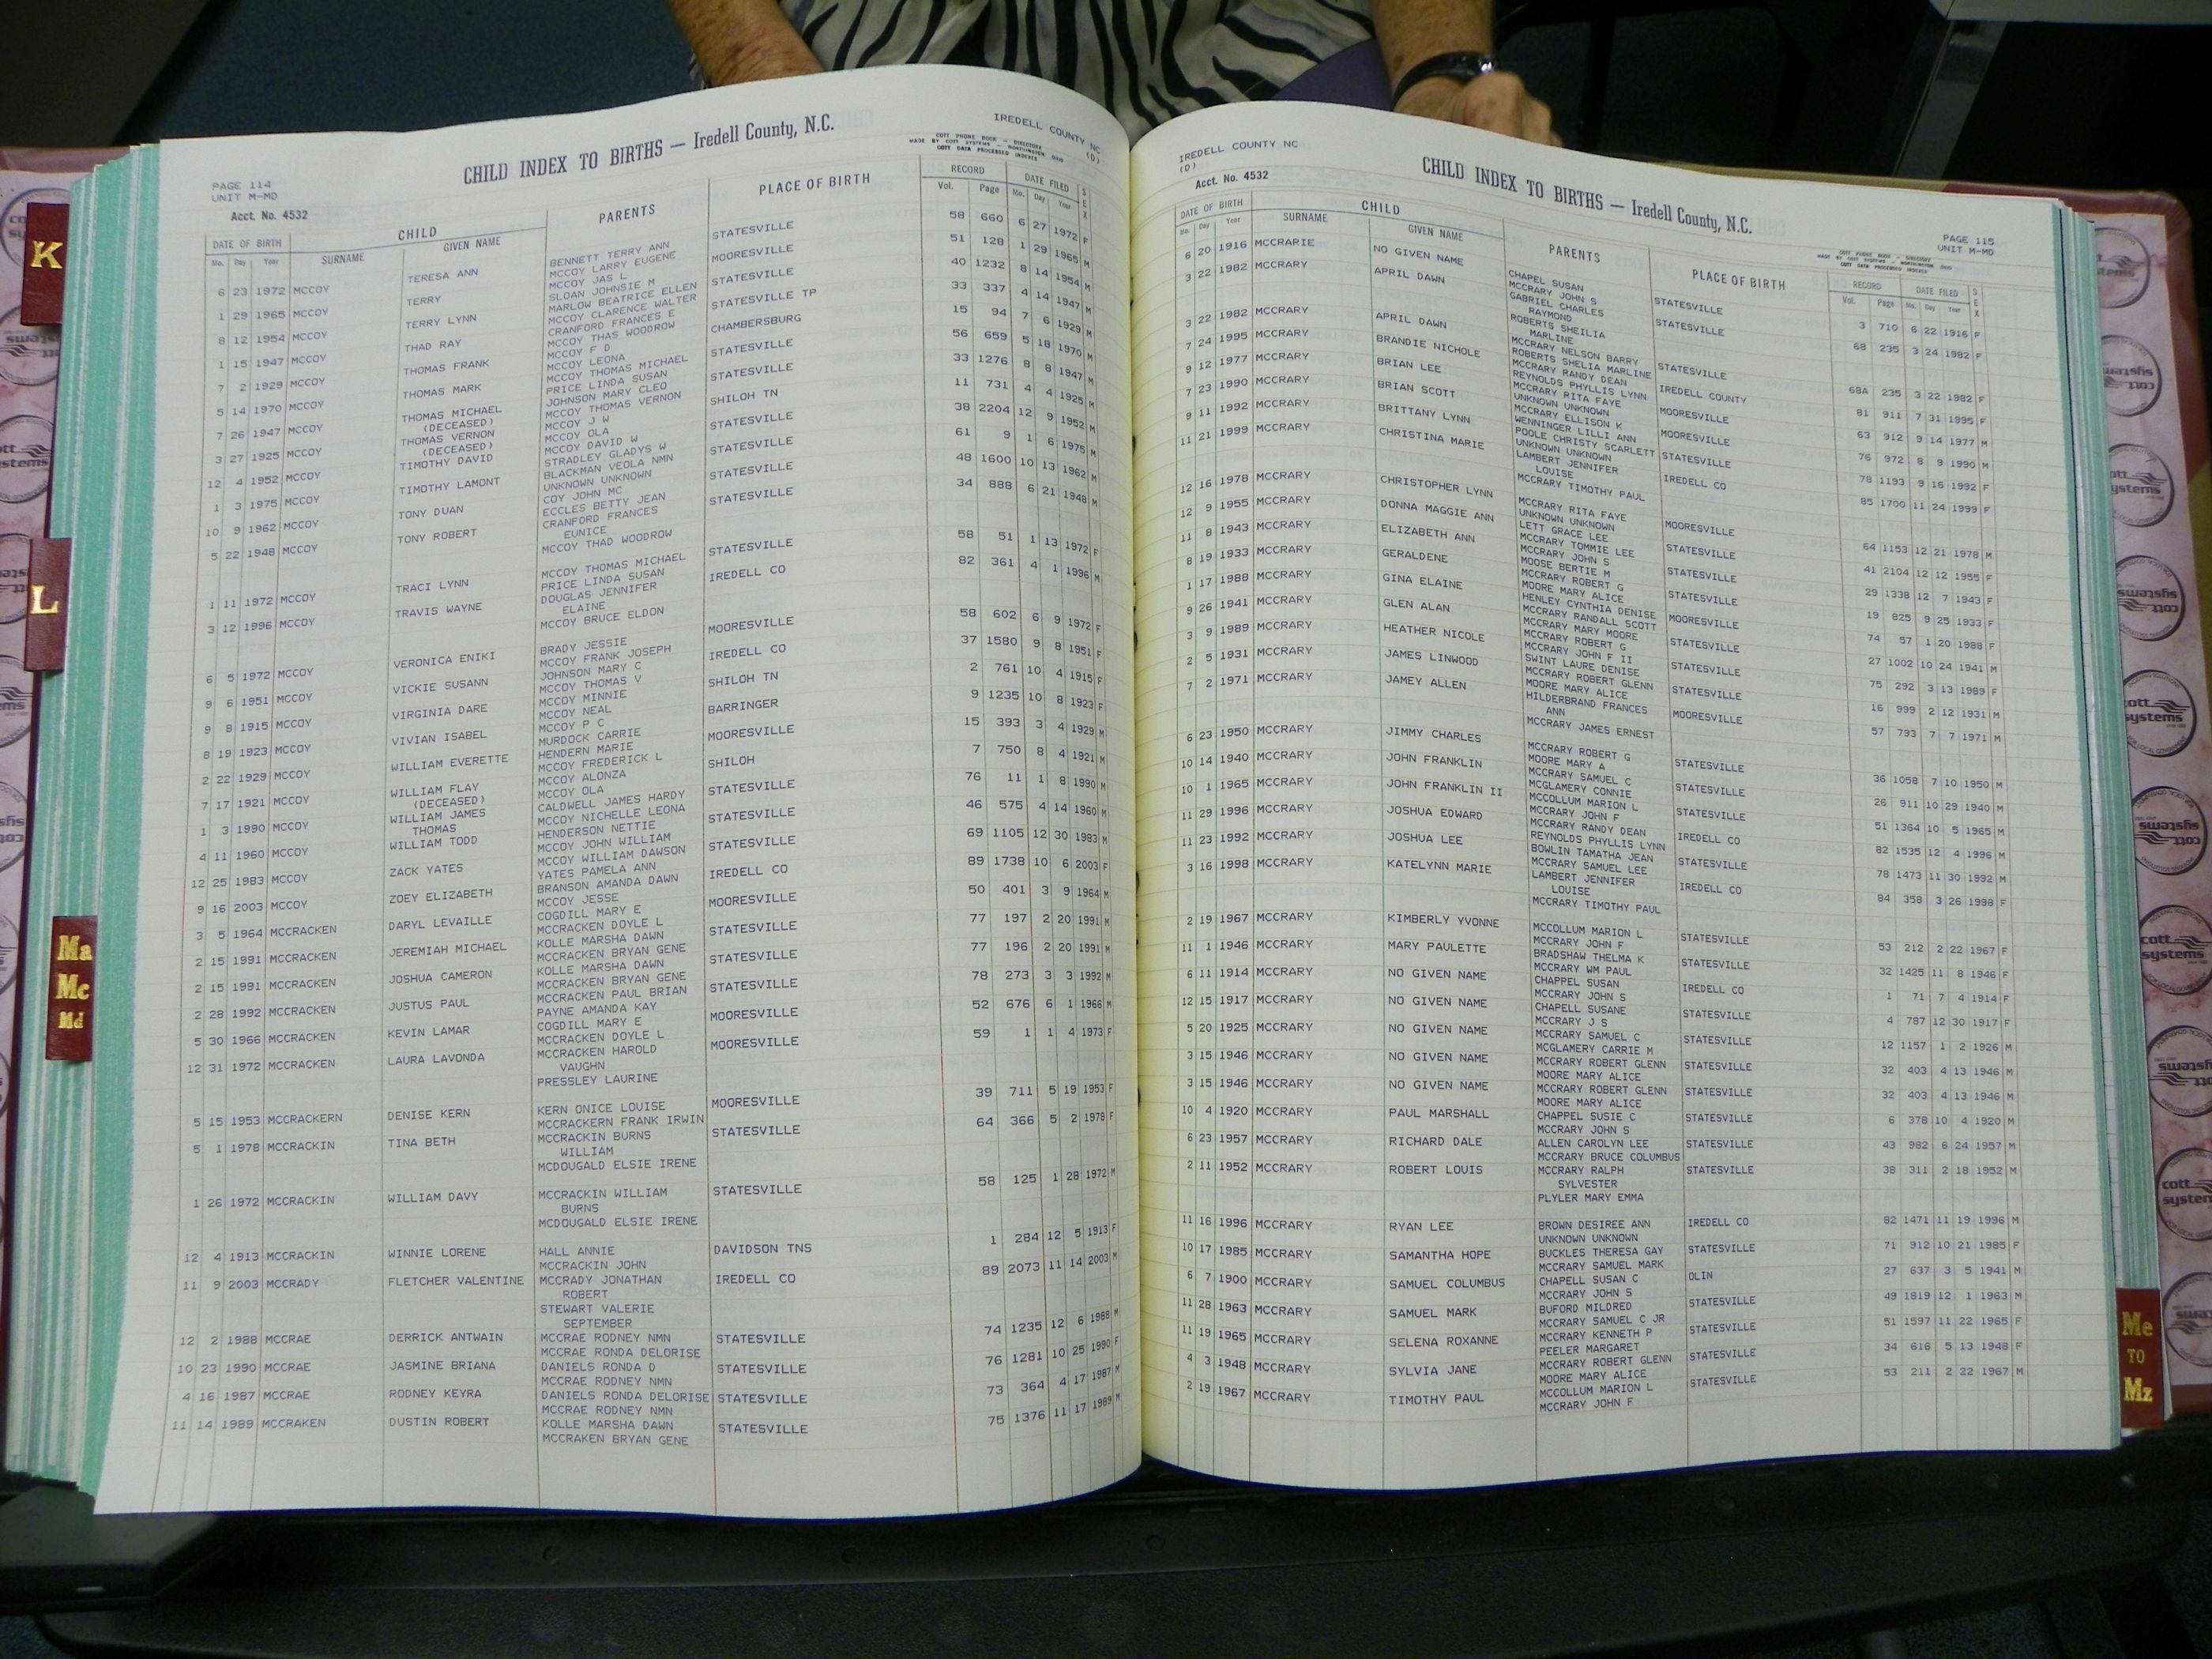 K
L
Ma
Mc
Md
PAGE 114
UNIT M-MD
Acct. No. 4532
CHILD INDEX TO BIRTHS — Iredell County, N.C.
IREDELL COUNTY NC
(D)
COTT PHONE BOOK - DIRECTORY
MADE BY COTT SYSTEMS - WORTHINGTON, OHIO
COTT DATA PROCESSED INDEXES
DATE OF BIRTH CHILD PARENTS PLACE OF BIRTH RECORD DATE FILED SEX
Mo. Day Year SURNAME GIVEN NAME Vol. Page Mo. Day Year
6 23 1972 MCCOY TERESA ANN BENNETT TERRY ANN STATESVILLE 58 660 6 27 1972 F
MCCOY LARRY EUGENE
1 29 1965 MCCOY TERRY MCCOY JAS L MOORESVILLE 51 128 1 29 1965 M
SLOAN JOHNSIE M
8 12 1954 MCCOY TERRY LYNN MARLOW BEATRICE ELLEN STATESVILLE 40 1232 8 14 1954 M
MCCOY CLARENCE WALTER
1 15 1947 MCCOY THAD RAY CRANFORD FRANCES E STATESVILLE TP 33 337 4 14 1947 M
MCCOY THAS WOODROW
7 2 1929 MCCOY THOMAS FRANK MCCOY F D CHAMBERSBURG 15 94 7 6 1929 M
MCCOY LEONA
5 14 1970 MCCOY THOMAS MARK MCCOY THOMAS MICHAEL STATESVILLE 56 659 5 18 1970 M
PRICE LINDA SUSAN
7 26 1947 MCCOY THOMAS MICHAEL JOHNSON MARY CLEO STATESVILLE 33 1276 8 8 1947 M
(DECEASED) MCCOY THOMAS VERNON
3 27 1925 MCCOY THOMAS VERNON MCCOY J W SHILOH TN 11 731 4 4 1925 M
(DECEASED) MCCOY OLA
12 4 1952 MCCOY TIMOTHY DAVID MCCOY DAVID W STATESVILLE 38 2204 12 9 1952 M
STRADLEY GLADYS W
1 3 1975 MCCOY TIMOTHY LAMONT BLACKMAN VEOLA NMN STATESVILLE 61 9 1 6 1975 M
UNKNOWN UNKNOWN
10 9 1962 MCCOY TONY DUAN COY JOHN MC STATESVILLE 48 1600 10 13 1962 M
ECCLES BETTY JEAN
5 22 1948 MCCOY TONY ROBERT CRANFORD FRANCES STATESVILLE 34 888 6 21 1948 M
EUNICE
MCCOY THAD WOODROW
1 11 1972 MCCOY TRACI LYNN MCCOY THOMAS MICHAEL STATESVILLE 58 51 1 13 1972 F
PRICE LINDA SUSAN
3 12 1996 MCCOY TRAVIS WAYNE DOUGLAS JENNIFER IREDELL CO 82 361 4 1 1996 M
ELAINE
MCCOY BRUCE ELDON
6 5 1972 MCCOY VERONICA ENIKI BRADY JESSIE MOORESVILLE 58 602 6 9 1972 F
MCCOY FRANK JOSEPH
9 6 1951 MCCOY VICKIE SUSANN JOHNSON MARY C IREDELL CO 37 1580 9 8 1951 F
MCCOY THOMAS V
9 8 1915 MCCOY VIRGINIA DARE MCCOY MINNIE SHILOH TN 2 761 10 4 1915 F
MCCOY NEAL
8 19 1923 MCCOY VIVIAN ISABEL MCCOY P C BARRINGER 9 1235 10 8 1923 F
MURDOCK CARRIE
2 22 1929 MCCOY WILLIAM EVERETTE HENDERN MARIE MOORESVILLE 15 393 3 4 1929 M
MCCOY FREDERICK L
7 17 1921 MCCOY WILLIAM FLAY MCCOY ALONZA SHILOH 7 750 8 4 1921 M
(DECEASED) MCCOY OLA
1 3 1990 MCCOY WILLIAM JAMES CALDWELL JAMES HARDY STATESVILLE 76 11 1 8 1990 M
THOMAS MCCOY NICHELLE LEONA
4 11 1960 MCCOY WILLIAM TODD HENDERSON NETTIE STATESVILLE 46 575 4 14 1960 M
MCCOY JOHN WILLIAM
12 25 1983 MCCOY ZACK YATES MCCOY WILLIAM DAWSON STATESVILLE 69 1105 12 30 1983 M
YATES PAMELA ANN
9 16 2003 MCCOY ZOEY ELIZABETH BRANSON AMANDA DAWN IREDELL CO 89 1738 10 6 2003 F
MCCOY JESSE
3 5 1964 MCCRACKEN DARYL LEVAILLE COGDILL MARY E MOORESVILLE 50 401 3 9 1964 M
MCCRACKEN DOYLE L
2 15 1991 MCCRACKEN JEREMIAH MICHAEL KOLLE MARSHA DAWN STATESVILLE 77 197 2 20 1991 M
MCCRACKEN BRYAN GENE
2 15 1991 MCCRACKEN JOSHUA CAMERON KOLLE MARSHA DAWN STATESVILLE 77 196 2 20 1991 M
MCCRACKEN BRYAN GENE
2 28 1992 MCCRACKEN JUSTUS PAUL MCCRACKEN PAUL BRIAN STATESVILLE 78 273 3 3 1992 M
PAYNE AMANDA KAY
5 30 1966 MCCRACKEN KEVIN LAMAR COGDILL MARY E MOORESVILLE 52 676 6 1 1966 M
MCCRACKEN DOYLE L
12 31 1972 MCCRACKEN LAURA LAVONDA MCCRACKEN HAROLD MOORESVILLE 59 1 1 4 1973 F
VAUGHN
PRESSLEY LAURINE
5 15 1953 MCCRACKERN DENISE KERN KERN ONICE LOUISE MOORESVILLE 39 711 5 19 1953 F
MCCRACKERN FRANK IRWIN
5 1 1978 MCCRACKIN TINA BETH MCCRACKIN BURNS STATESVILLE 64 366 5 2 1978 F
WILLIAM
MCDOUGALD ELSIE IRENE
1 26 1972 MCCRACKIN WILLIAM DAVY MCCRACKIN WILLIAM STATESVILLE 58 125 1 28 1972 M
BURNS
MCDOUGALD ELSIE IRENE
12 4 1913 MCCRACKIN WINNIE LORENE HALL ANNIE DAVIDSON TNS 1 284 12 5 1913 F
MCCRACKIN JOHN
11 9 2003 MCCRADY FLETCHER VALENTINE MCCRADY JONATHAN IREDELL CO 89 2073 11 14 2003 M
ROBERT
STEWART VALERIE
SEPTEMBER
12 2 1988 MCCRAE DERRICK ANTWAIN MCCRAE RODNEY NMN STATESVILLE 74 1235 12 6 1988 M
MCCRAE RONDA DELORISE
10 23 1990 MCCRAE JASMINE BRIANA DANIELS RONDA D STATESVILLE 76 1281 10 25 1990 F
MCCRAE RODNEY NMN
4 16 1987 MCCRAE RODNEY KEYRA DANIELS RONDA DELORISE STATESVILLE 73 364 4 17 1987 M
MCCRAE RODNEY NMN
11 14 1989 MCCRAKEN DUSTIN ROBERT KOLLE MARSHA DAWN STATESVILLE 75 1376 11 17 1989 M
MCCRAKEN BRYAN GENE
IREDELL COUNTY NC
(D)
Acct. No. 4532
CHILD INDEX TO BIRTHS — Iredell County, N.C.
PAGE 115
UNIT M-MD
COTT PHONE BOOK - DIRECTORY
MADE BY COTT SYSTEMS - WORTHINGTON, OHIO
COTT DATA PROCESSED INDEXES
DATE OF BIRTH CHILD PARENTS PLACE OF BIRTH RECORD DATE FILED SEX
Mo. Day Year SURNAME GIVEN NAME Vol. Page Mo. Day Year
6 20 1916 MCCRARIE NO GIVEN NAME CHAPEL SUSAN STATESVILLE 3 710 6 22 1916 F
MCCRARY JOHN S
3 22 1982 MCCRARY APRIL DAWN GABRIEL CHARLES STATESVILLE 68 235 3 24 1982 F
RAYMOND
ROBERTS SHEILIA
MARLINE
3 22 1982 MCCRARY APRIL DAWN MCCRARY NELSON BARRY STATESVILLE 68A 235 3 22 1982 F
ROBERTS SHELIA MARLINE
7 24 1995 MCCRARY BRANDIE NICHOLE MCCRARY RANDY DEAN IREDELL COUNTY 81 911 7 31 1995 F
REYNOLDS PHYLLIS LYNN
9 12 1977 MCCRARY BRIAN LEE MCCRARY RITA FAYE MOORESVILLE 63 912 9 14 1977 M
UNKNOWN UNKNOWN
7 23 1990 MCCRARY BRIAN SCOTT MCCRARY ELLISON K MOORESVILLE 76 972 8 9 1990 M
WENNINGER LILLI ANN
9 11 1992 MCCRARY BRITTANY LYNN POOLE CHRISTY SCARLETT STATESVILLE 78 1193 9 16 1992 F
UNKNOWN UNKNOWN
11 21 1999 MCCRARY CHRISTINA MARIE LAMBERT JENNIFER IREDELL CO 85 1700 11 24 1999 F
LOUISE
MCCRARY TIMOTHY PAUL
12 16 1978 MCCRARY CHRISTOPHER LYNN MCCRARY RITA FAYE MOORESVILLE 64 1153 12 21 1978 M
UNKNOWN UNKNOWN
12 9 1955 MCCRARY DONNA MAGGIE ANN LETT GRACE LEE STATESVILLE 41 2104 12 12 1955 F
MCCRARY TOMMIE LEE
11 8 1943 MCCRARY ELIZABETH ANN MCCRARY JOHN S STATESVILLE 29 1338 12 7 1943 F
MOOSE BERTIE M
8 19 1933 MCCRARY GERALDENE MCCRARY ROBERT G STATESVILLE 19 825 9 25 1933 F
MOORE MARY ALICE
1 17 1988 MCCRARY GINA ELAINE HENLEY CYNTHIA DENISE MOORESVILLE 74 57 1 20 1988 F
MCCRARY RANDALL SCOTT
9 26 1941 MCCRARY GLEN ALAN MCCRARY MARY MOORE STATESVILLE 27 1002 10 24 1941 M
MCCRARY ROBERT G
3 9 1989 MCCRARY HEATHER NICOLE MCCRARY JOHN F II STATESVILLE 75 292 3 13 1989 F
SWINT LAURE DENISE
2 5 1931 MCCRARY JAMES LINWOOD MCCRARY ROBERT GLENN STATESVILLE 16 999 2 12 1931 M
MOORE MARY ALICE
7 2 1971 MCCRARY JAMEY ALLEN HILDERBRAND FRANCES MOORESVILLE 57 793 7 7 1971 M
ANN
MCCRARY JAMES ERNEST
6 23 1950 MCCRARY JIMMY CHARLES MCCRARY ROBERT G STATESVILLE 36 1058 7 10 1950 M
MOORE MARY A
10 14 1940 MCCRARY JOHN FRANKLIN MCCRARY SAMUEL C STATESVILLE 26 911 10 29 1940 M
MCGLAMERY CONNIE
10 1 1965 MCCRARY JOHN FRANKLIN II MCCOLLUM MARION L STATESVILLE 51 1364 10 5 1965 M
MCCRARY JOHN F
11 29 1996 MCCRARY JOSHUA EDWARD MCCRARY RANDY DEAN IREDELL CO 82 1535 12 4 1996 M
REYNOLDS PHYLLIS LYNN
11 23 1992 MCCRARY JOSHUA LEE BOWLIN TAMATHA JEAN STATESVILLE 78 1473 11 30 1992 M
MCCRARY SAMUEL LEE
3 16 1998 MCCRARY KATELYNN MARIE LAMBERT JENNIFER IREDELL CO 84 358 3 26 1998 F
LOUISE
MCCRARY TIMOTHY PAUL
2 19 1967 MCCRARY KIMBERLY YVONNE MCCOLLUM MARION L STATESVILLE 53 212 2 22 1967 F
MCCRARY JOHN F
11 1 1946 MCCRARY MARY PAULETTE BRADSHAW THELMA K STATESVILLE 32 1425 11 8 1946 F
MCCRARY WM PAUL
6 11 1914 MCCRARY NO GIVEN NAME CHAPPEL SUSAN IREDELL CO 1 71 7 4 1914 F
MCCRARY JOHN S
12 15 1917 MCCRARY NO GIVEN NAME CHAPELL SUSANE STATESVILLE 4 787 12 30 1917 F
MCCRARY J S
5 20 1925 MCCRARY NO GIVEN NAME MCCRARY SAMUEL C STATESVILLE 12 1157 1 2 1926 M
MCGLAMERY CARRIE M
3 15 1946 MCCRARY NO GIVEN NAME MCCRARY ROBERT GLENN STATESVILLE 32 403 4 13 1946 M
MOORE MARY ALICE
3 15 1946 MCCRARY NO GIVEN NAME MCCRARY ROBERT GLENN STATESVILLE 32 403 4 13 1946 M
MOORE MARY ALICE
10 4 1920 MCCRARY PAUL MARSHALL CHAPPEL SUSIE C STATESVILLE 6 378 10 4 1920 M
MCCRARY JOHN S
6 23 1957 MCCRARY RICHARD DALE ALLEN CAROLYN LEE STATESVILLE 43 982 6 24 1957 M
MCCRARY BRUCE COLUMBUS
2 11 1952 MCCRARY ROBERT LOUIS MCCRARY RALPH STATESVILLE 38 311 2 18 1952 M
SYLVESTER
PLYLER MARY EMMA
11 16 1996 MCCRARY RYAN LEE BROWN DESIREE ANN IREDELL CO 82 1471 11 19 1996 M
UNKNOWN UNKNOWN
10 17 1985 MCCRARY SAMANTHA HOPE BUCKLES THERESA GAY STATESVILLE 71 912 10 21 1985 F
MCCRARY SAMUEL MARK
6 7 1900 MCCRARY SAMUEL COLUMBUS CHAPELL SUSAN C OLIN 27 637 3 5 1941 M
MCCRARY JOHN S
11 28 1963 MCCRARY SAMUEL MARK BUFORD MILDRED STATESVILLE 49 1819 12 1 1963 M
MCCRARY SAMUEL C JR
11 19 1965 MCCRARY SELENA ROXANNE MCCRARY KENNETH P STATESVILLE 51 1597 11 22 1965 F
PEELER MARGARET
4 3 1948 MCCRARY SYLVIA JANE MCCRARY ROBERT GLENN STATESVILLE 34 616 5 13 1948 F
MOORE MARY ALICE
2 19 1967 MCCRARY TIMOTHY PAUL MCCOLLUM MARION L STATESVILLE 53 211 2 22 1967 M
MCCRARY JOHN F
Me
TO
Mz
cott
systems